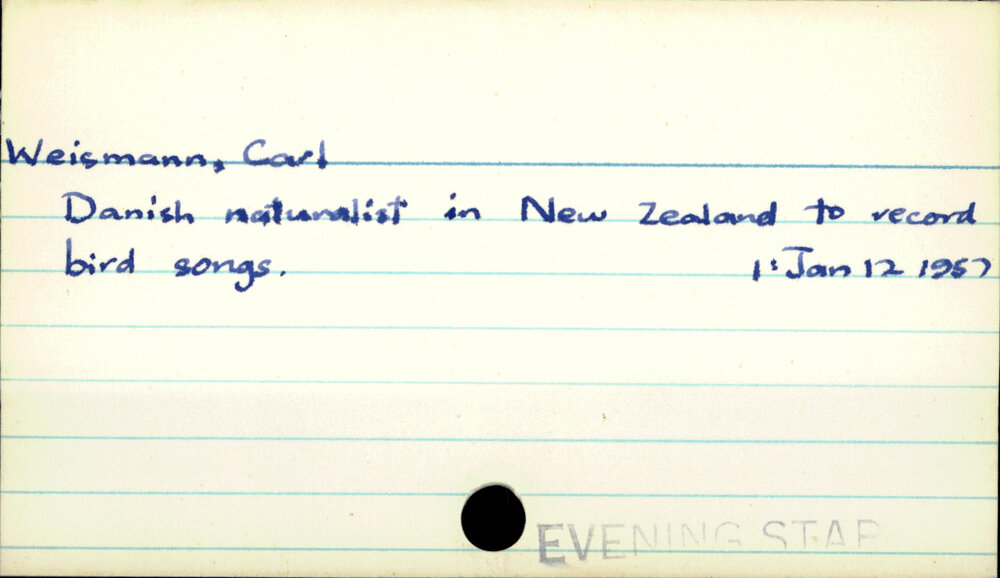 Weismann, Carl
Danish naturalist in New Zealand to record
bird songs. 1: Jan 12 1957
EVENING STAR